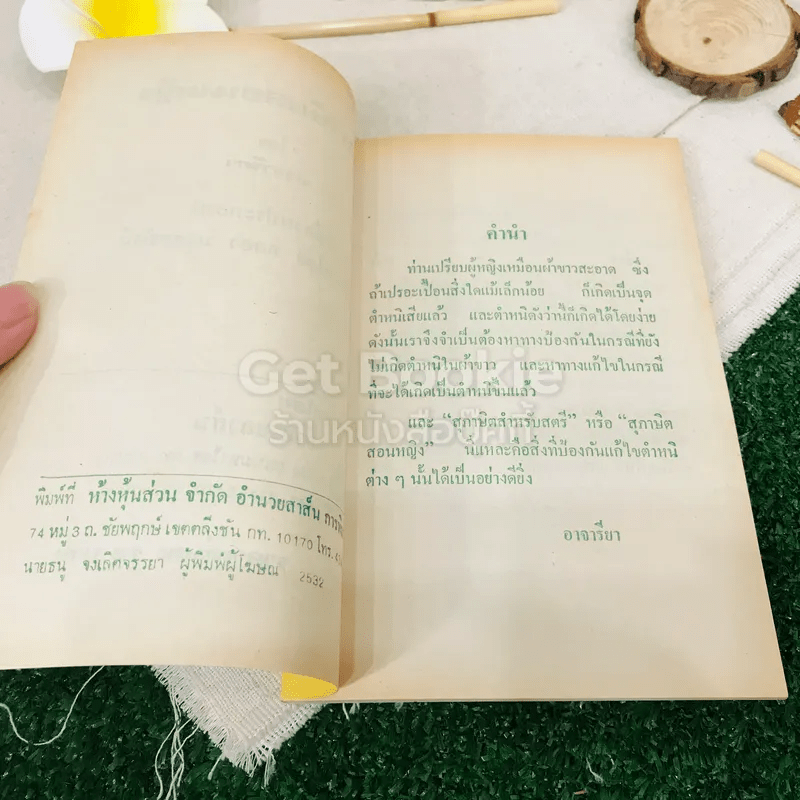 พิมพ์ที่ ห้างหุ้นส่วน จำกัด อำนวยสาส์น
74 หมู่ 3 ถ. ชัยพฤกษ์ เขตตลิ่งชัน กท. 10170 โทร.
นายธนู จงเลิศจรรยา ผู้พิมพ์ผู้โฆษณา 2532
คำนำ
ท่านเปรียบผู้หญิงเหมือนผ้าขาวสะอาด ซึ่ง
ถ้าเปรอะเปื้อนสิ่งใดแม้เล็กน้อย ก็เกิดเป็นจุด
ตำหนิเสียแล้ว และตำหนิดังว่านี้ก็เกิดได้โดยง่าย
ดังนั้นเราจึงจำเป็นต้องหาทางป้องกันในกรณีที่ยัง
ไม่เกิดตำหนิในผ้าขาว และหาทางแก้ไขในกรณี
ที่จะได้เกิดเป็นตำหนิขึ้นแล้ว
และ “สุภาษิตสำหรับสตรี” หรือ “สุภาษิต
สอนหญิง” นี่แหละคือสิ่งที่ป้องกันแก้ไขตำหนิ
ต่าง ๆ นั้นได้เป็นอย่างดียิ่ง
อาจารียา
Get Bookie
ร้านหนังสือบุ๊คกี้